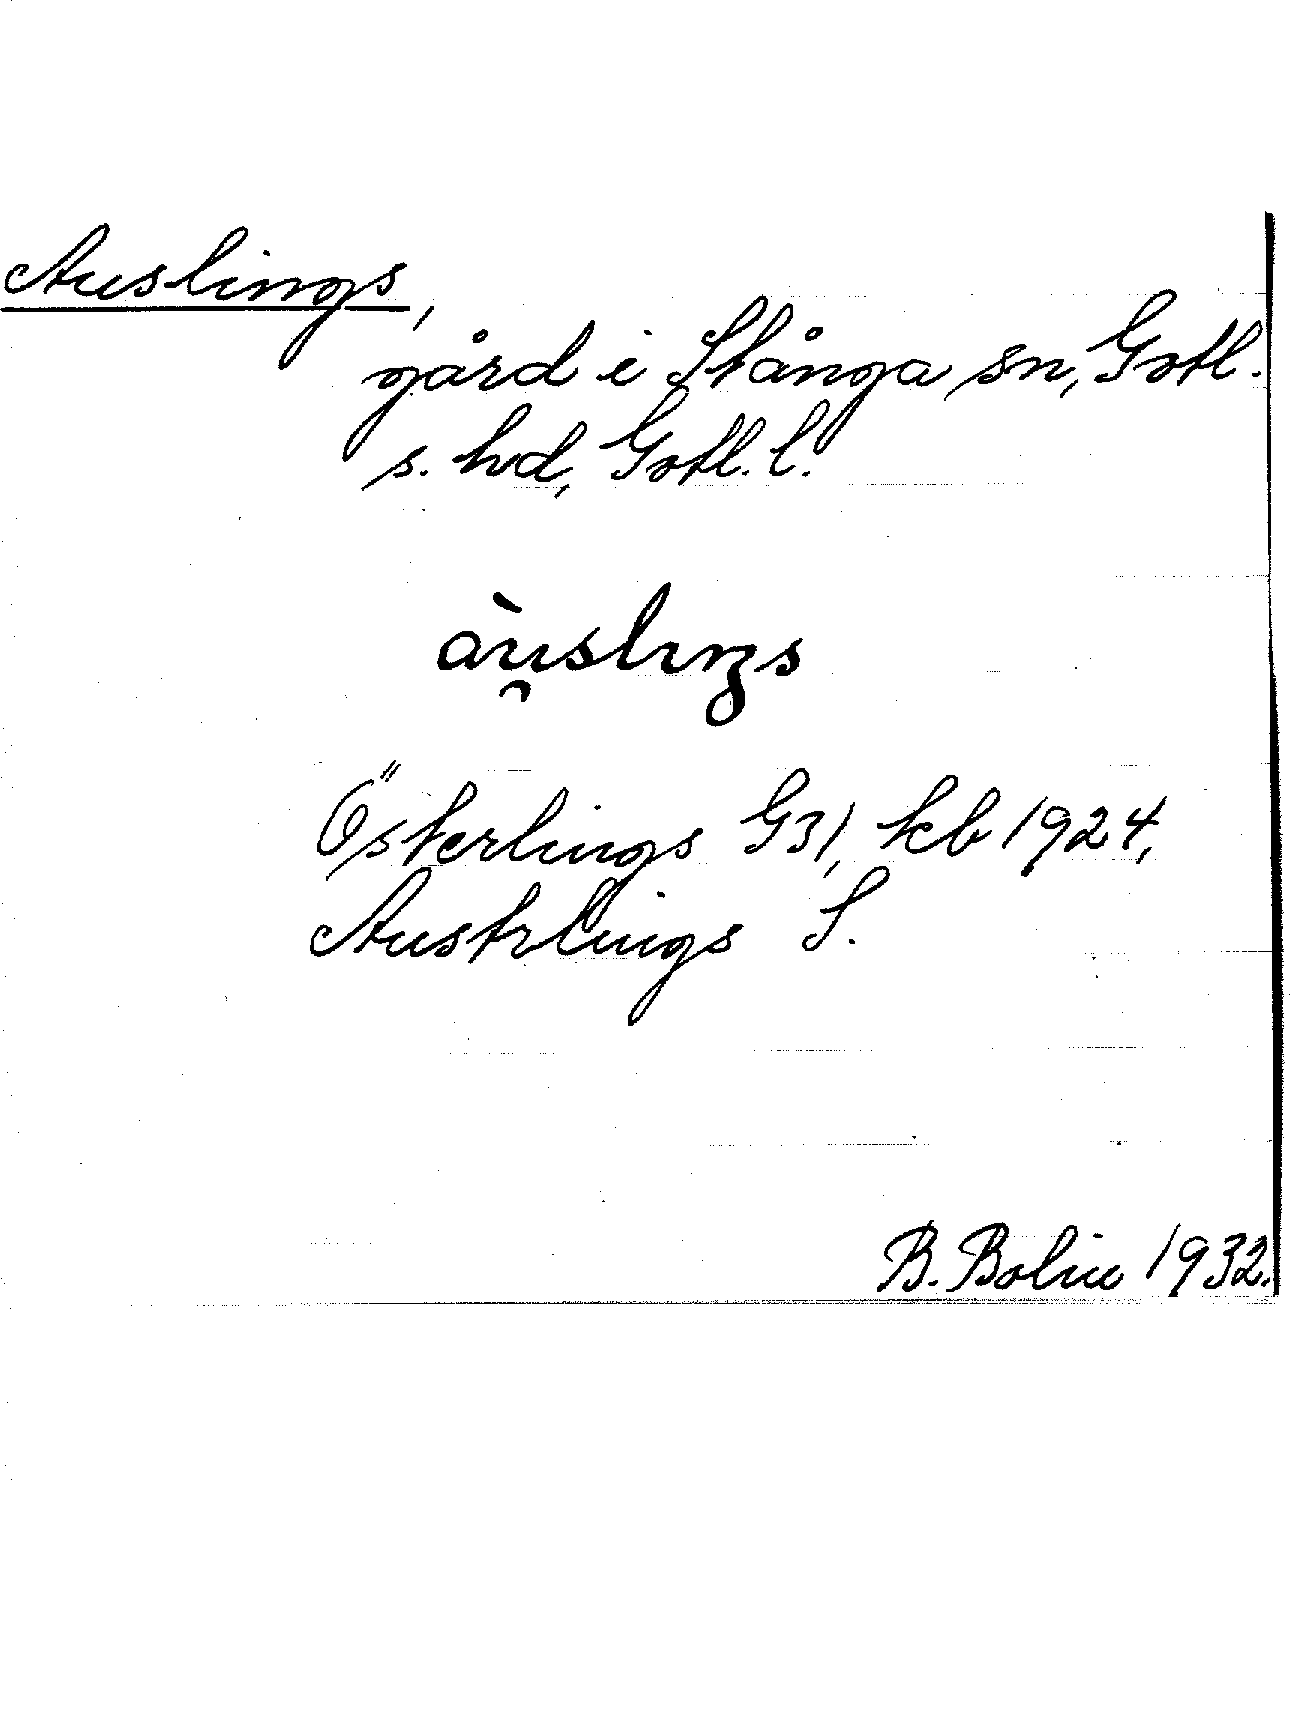 Auslings,
gård i Stånga sn, Gotl.
s. hd, Gotl. l.
àu̯slıŋs
Österlings G31, kb 1924,
Austrlings S.
B. Bolin 1932.